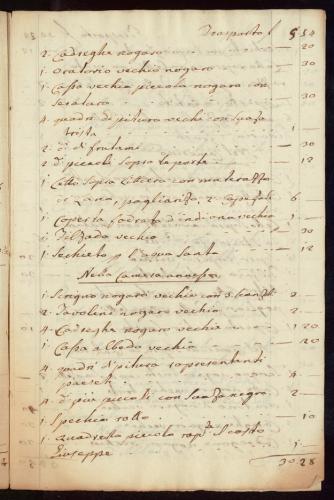 Trasporto f 5 54
2 Cadreghe nogara — 30
1 Oratorio vechio nogara — 30
1 Cassa vechia piccola nogara con
Seratura — 30
4 quadri di pitura vechi con Suaza
trista 1 —
2 d.i di frutami — 30
2 d.i piccoli sopra le porte — 12
1 Letto sopra con materazzo
di Lana, pagliarizo, 2 6 —
1 Coperta fodrata d'indiana vechia 1 —
1 vechio — 30
1 Sechieto p l'aqua Santa — 12
Nella Camera annessa
1 Scrigno nogara vechio con 3 2 —
2 Tavolini nogara vechio 2 —
4 Cadreghe nogara vechie 1 20
1 Cassa albedo vechia 1 20
4 quadri di pitura rapresentanti
paesi 4 —
4 d.i più piccoli con Suaza negra 2 —
1 Spechio rotto — 10
1 Quadretto piccolo rap.te S.
Giuseppe 1 —
30 28